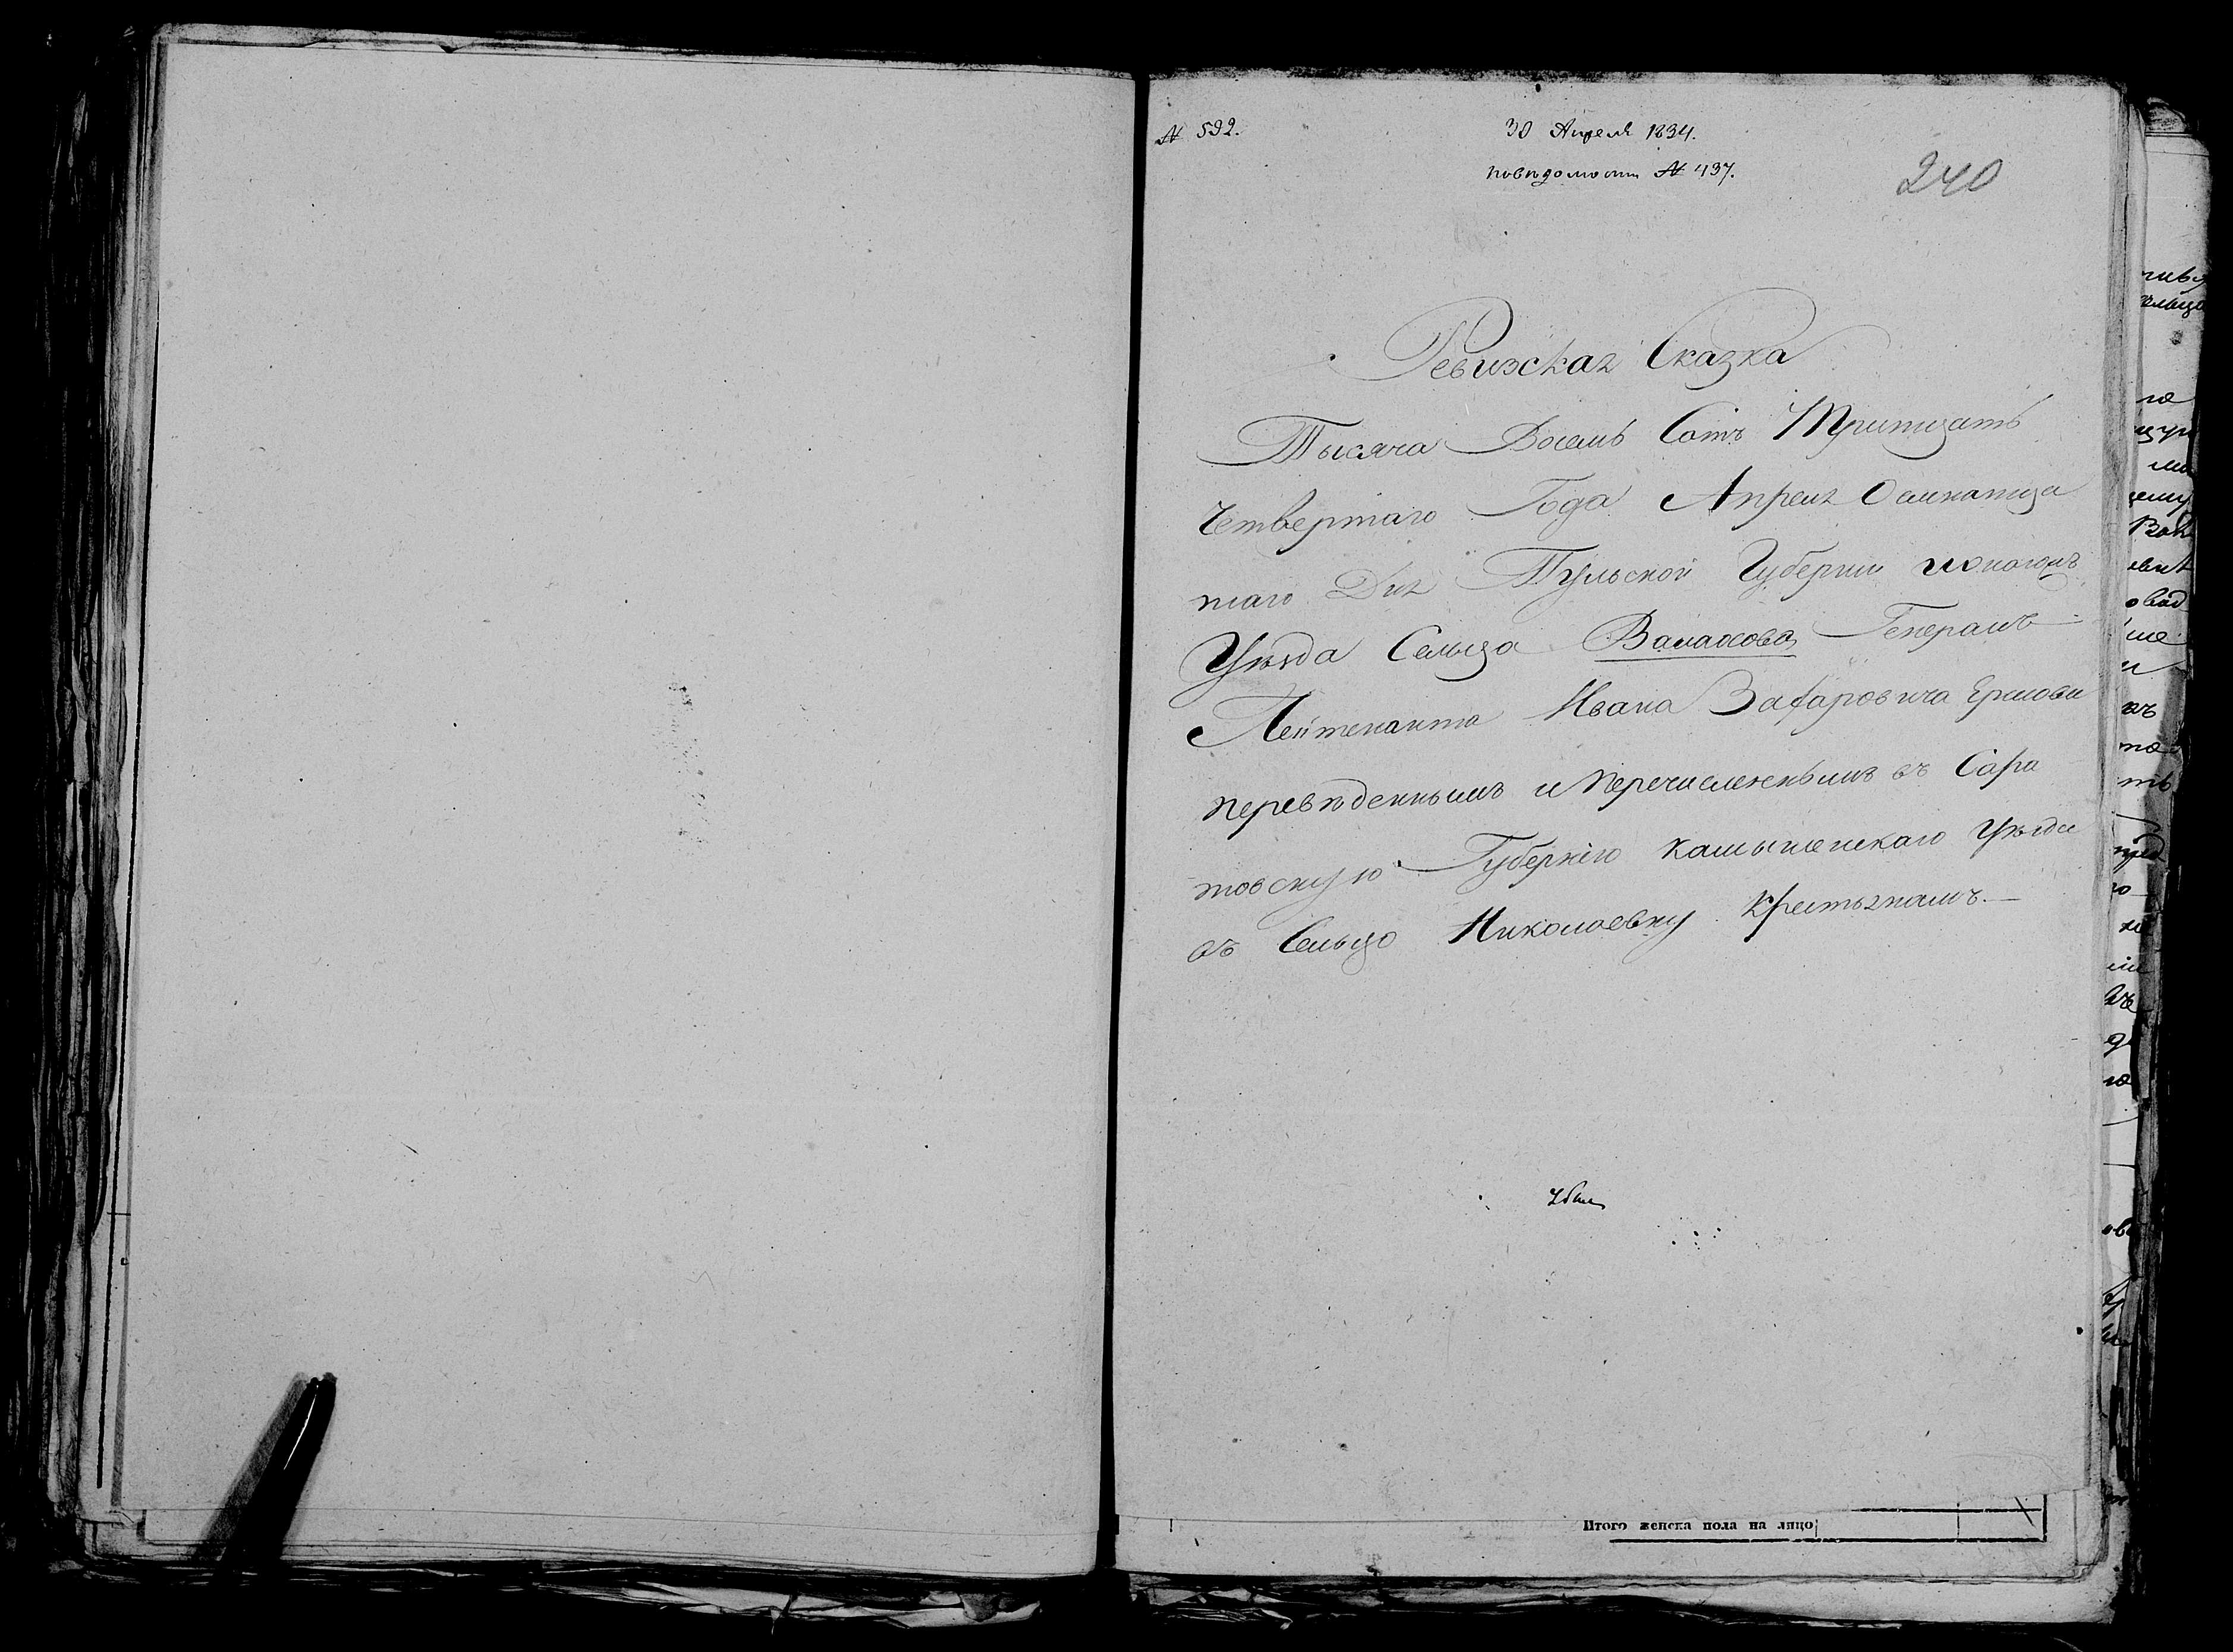 № 592.
30 Апреля 1834.
поведомости № 437.
240
Ревизская Сказка
Тысяча Восемь Сотъ Тритцать
четвертаго Года Апреля Осмнатца
таго Дня Тульской Губернии
Уезда Сельца Генералъ
Лейтенанта Ивана Захаровича Ершова
переведеннымъ и перечисленнымъ въ Сара
товскую Губернiю Камышенскаго Уезда
въ Сельцо Николаевку крестьянамъ.—
Итого женска пола на лицо